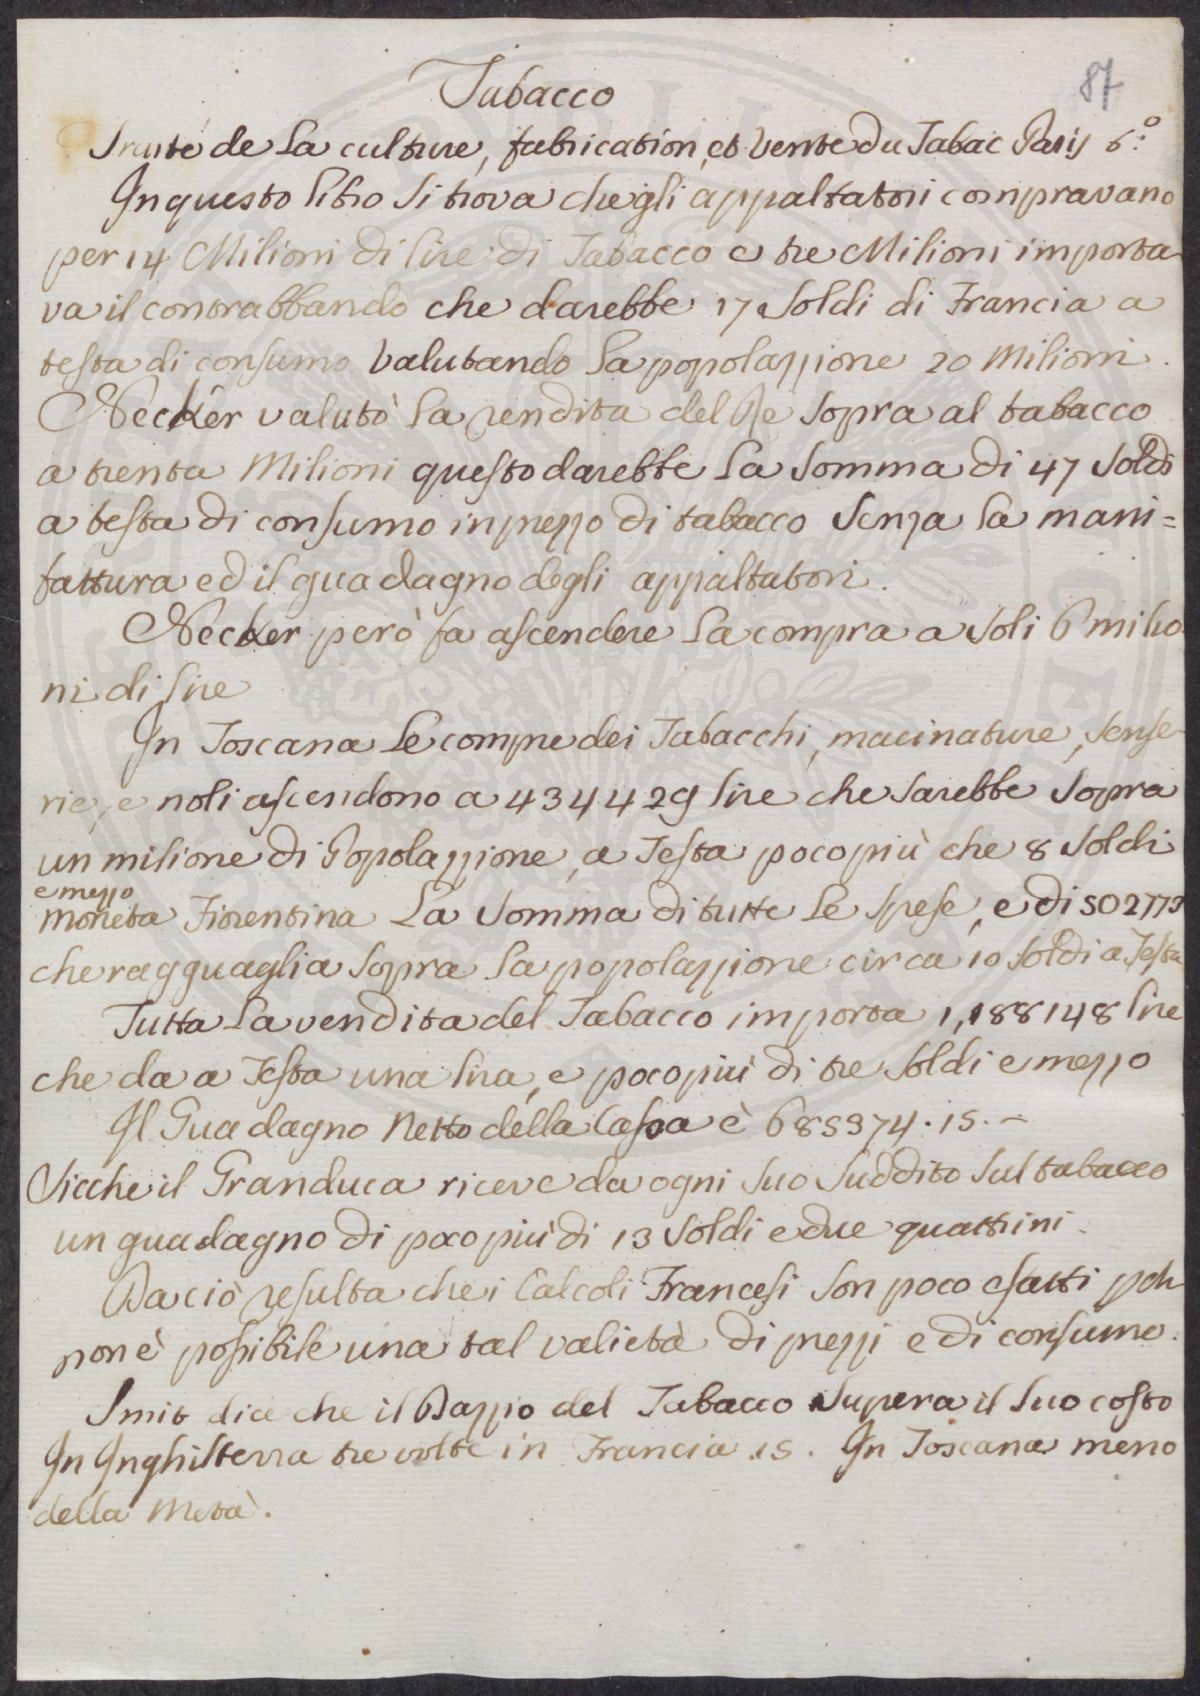 87
Tabacco
Traité de la culture, fabrication, et vente du Tabac Paris 6.º
In questo libro si trova che gli appaltatori compravano
per 14 Milioni di lire di Tabacco e tre Milioni importa
va il contrabbando che darebbe 17 soldi di Francia a
testa di consumo valutando la popolazzione 20 Milioni.
Necker valutò la rendita del Re sopra al tabacco
a trenta Milioni questo darebbe la somma di 47 soldi
a testa di consumo in prezzo di tabacco senza la mani=
fattura ed il guadagno degli appaltatori.
Necker però fa ascendere la compra a soli 6 milio
ni di lire
In Toscana le compre dei Tabacchi, macinature, sense
rie, e noli ascendono a 434429 lire che sarebbe sopra
un milione di Popolazzione, a Testa poco più che 8 soldi
e mezzo
moneta Fiorentina La somma di tutte le spese, e di 502773
che ragguaglia sopra la popolazzione circa 10 soldi a Testa
Tutta la vendita del Tabacco importa 1,188148 lire
che da a Testa una lira, e poco più di tre soldi e mezzo
Il Guadagno Netto della Cassa è 685374.15.–
Sicche il Granduca riceve da ogni suo suddito sul tabacco
un guadagno di poco più di 13 soldi e due quattrini.
Da ciò resulta che i Calcoli Francesi son poco esatti pch
non è possibile una tal valietà di prezzi e di consumo.
Smit dice che il Dazzio del Tabacco supera il suo costo
In Inghilterra tre volte in Francia 15. In Toscana meno
della metà.